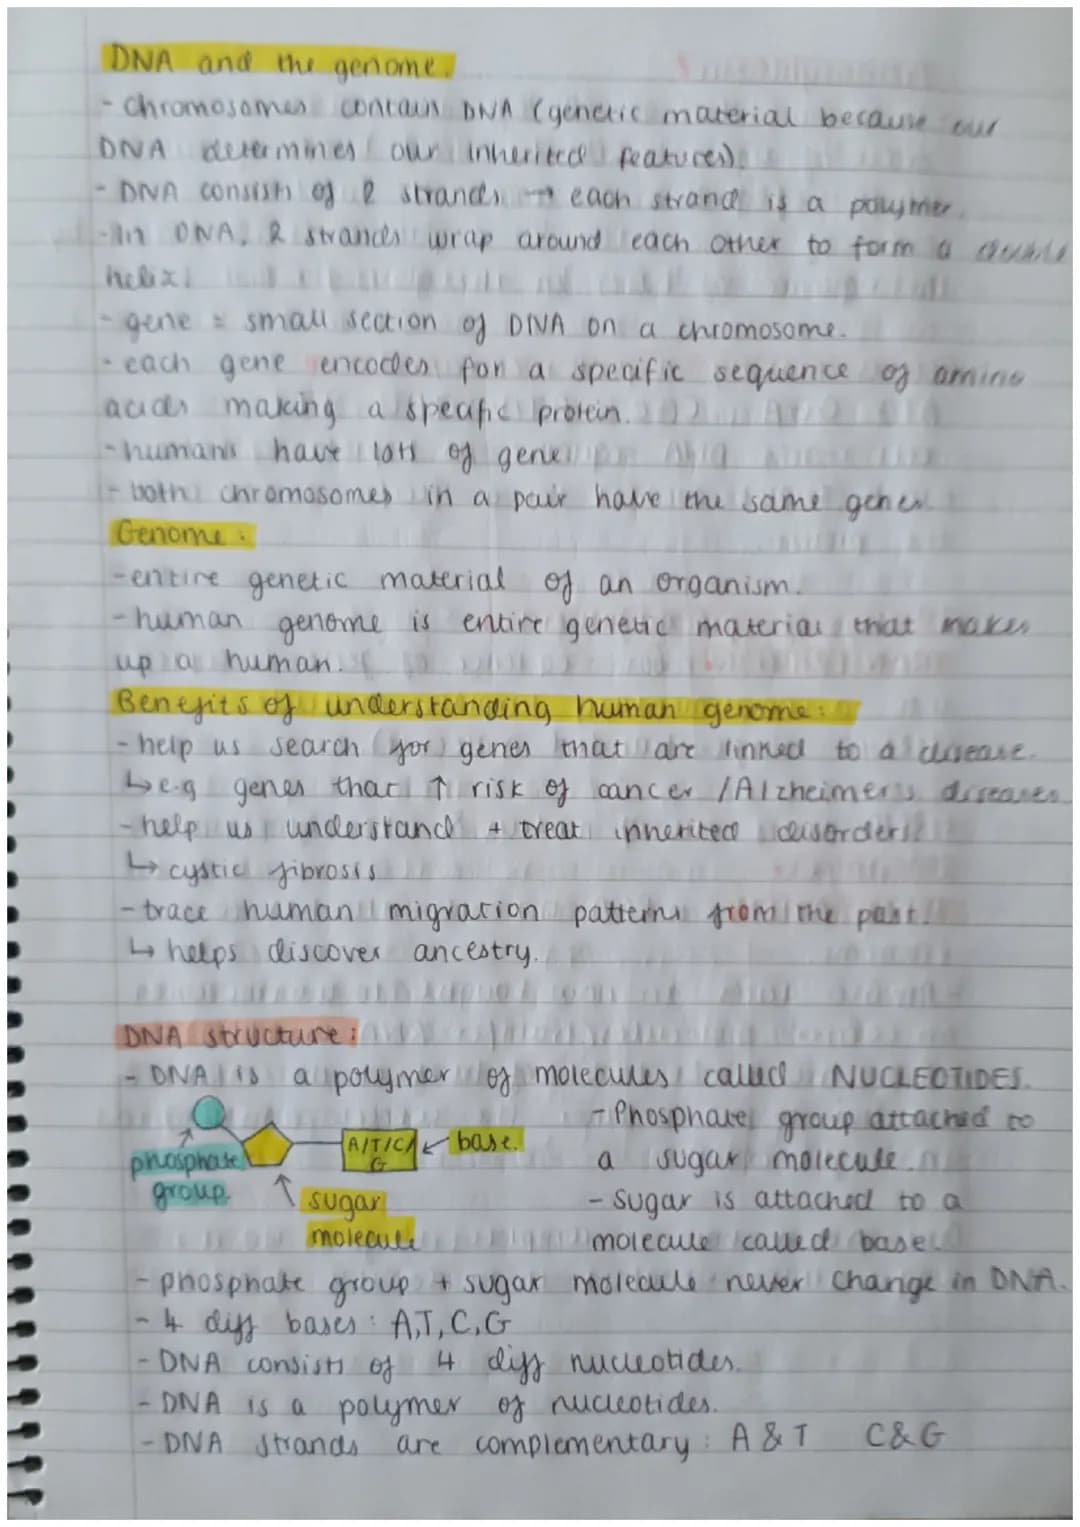 DNA and the genome.
- Chromosomes contain DNA (genetic material because our
DNA determines our inherited features).
- DNA consists of 2 strands → each strand is a polymer.
- In DNA, 2 strands wrap around each other to form a double
helix.
- gene = small section of DNA on a chromosome.
- each gene encodes for a specific sequence of amino
acids making a specific protein.
- humans have lots of genes
- both chromosomes in a pair have the same genes.
Genome:
- entire genetic material of an organism.
- human genome is entire genetic material that makes
up a human.
Benefits of understanding human genome:
- help us search for genes that are linked to a disease.
↳ e.g genes that ↑ risk of cancer / Alzheimer's diseases
- help us understand + treat inherited disorders
↳ cystic fibrosis
- trace human migration patterns from the past.
↳ helps discover ancestry.
DNA structure:
- DNA is a polymer of molecules called NUCLEOTIDES.
phosphate
group.
sugar
molecule
A/T/C/
G
base.
- Phosphate group attached to
a sugar molecule.
- sugar is attached to a
molecule called base.
- phosphate group + sugar molecule never change in DNA.
- 4 diff bases: A,T,C,G
- DNA consists of 4 diff nucleotides.
- DNA is a polymer of nucleotides.
- DNA strands are complementary: A & T C & G